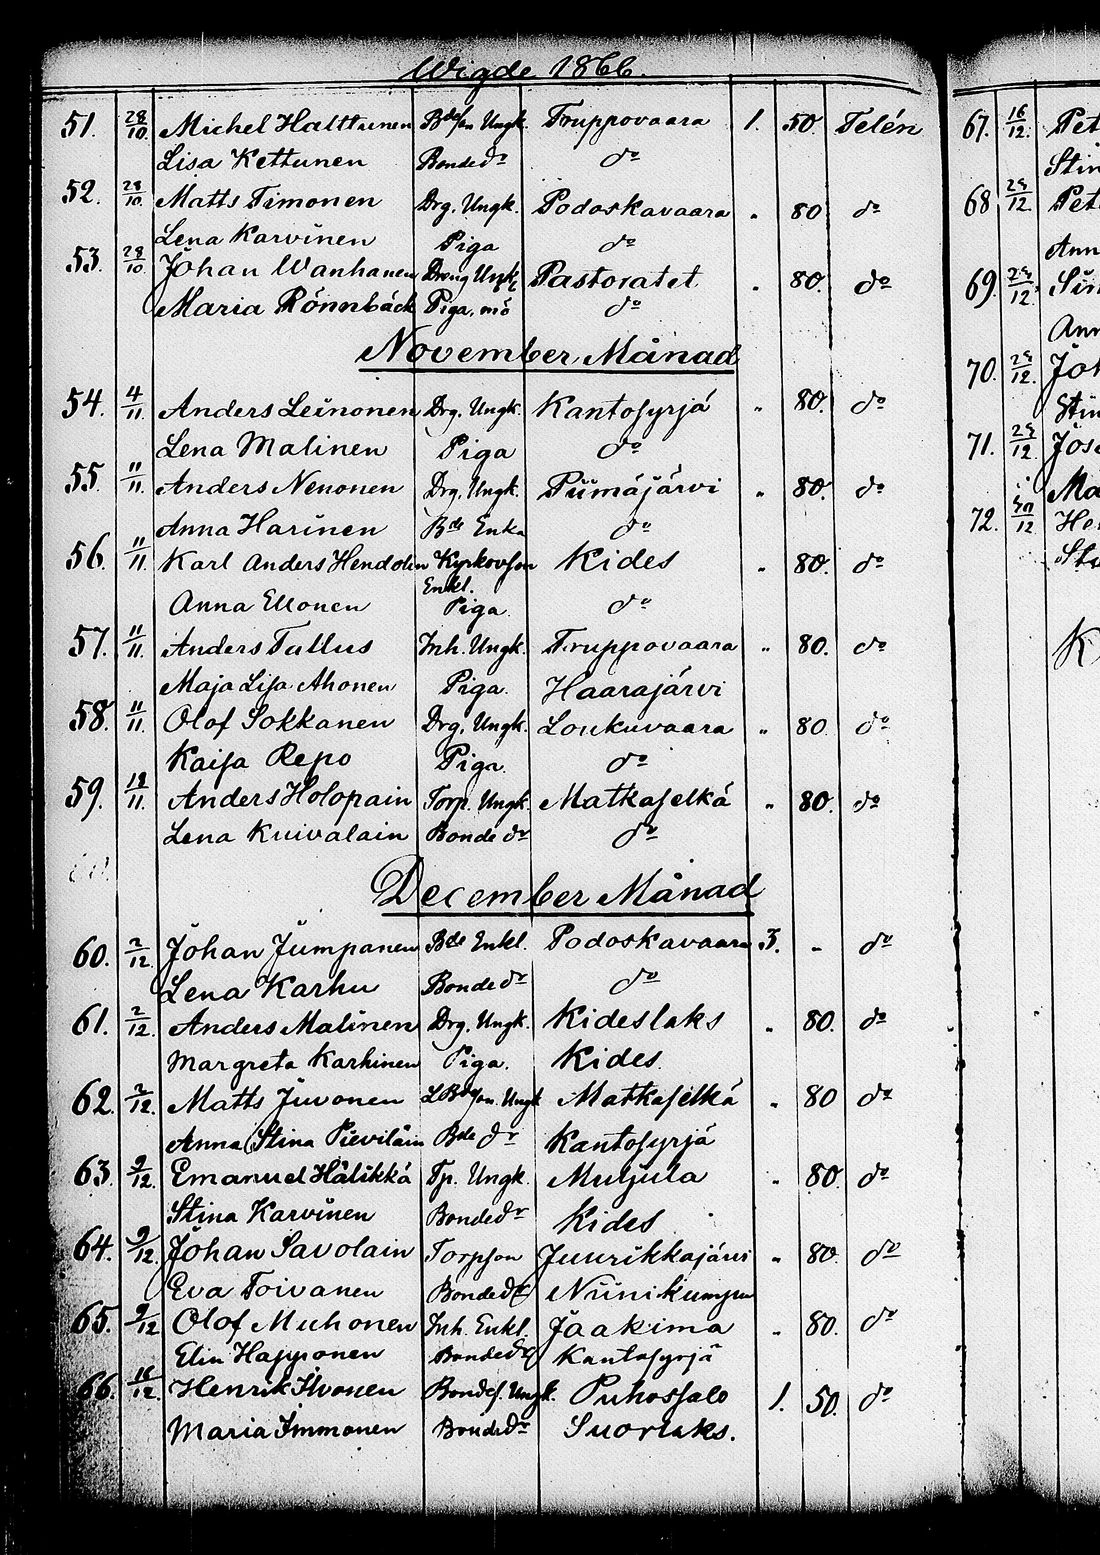 Wigde 1866.
51. 28/10. Michel Halttunen Bdeson Ungk. Truppovaara 1. 50. Telén
Lisa Kettunen Bonde dr do
52. 28/10. Matts Timonen Drg. Ungk. Podoskavaara " 80 do
Lena Karvinen Piga do
53. 28/10. Johan Wanhanen Dreng Ungk Pastoratet " 80. do
Maria Rönnbäck Piga. mö do
November Månad
54. 4/11. Anders Leinonen Drg. Ungk. Kantosyrjä " 80. do
Lena Malinen Piga do
55. 11/11. Anders Nenonen Drg. Ungk. Piimäjärvi " 80. do
Anna Harinen Bde Enka do
56. 11/11. Karl Anders Hendolin Kyrkovson Kides " 80. do
Enkl.
Anna Ellonen Piga. do
57. 11/11. Anders Tallus Inh. Ungk. Truppovaara " 80. do
Maja Lisa Ahonen Piga. Haarajärvi
58. 11/11. Olof Sokkanen Drg. Ungk. Loukuvaara " 80. do
Kaisa Repo Piga. do
59. 18/11. Anders Holopain Torp. Ungk. Matkaselkä " 80. do
Lena Kuivalain Bonde dr do
December Månad
60. 2/12. Johan Jumpanen Bde Enkl. Podoskavaara 3. - do
Lena Karhu Bonde dr do
61. 2/12. Anders Malinen Drg. Ungk. Kideslaks " 80. do
Margreta Karhinen Piga. Kides.
62. 2/12. Matts Juvonen LBdson. Ungk Matkaselkä " 80 do
Anna Stina Pieviläin Bde dr Kantosyrjä
63. 9/12. Emanuel Hälikkä Tp. Ungk. Muljula " 80. do
Stina Karvinen Bonde dr Kides
64. 9/12. Johan Savolain Torpson Juurikkajärvi " 80. do
Eva Toivanen Bonde dr Niinikumpu
65. 9/12 Olof Muhonen Inh. Enkl. Jaakima " 80. do
Elin Happonen Bonde dr Kantosyrjä
66. 16/12. Henrik Ikonen Bondes. Ungk. Puhossalo 1. 50. do
Maria Immonen Bonde dr Suorlaks.
67. 16/12. Pet
Stin
68 25/12. Pet
Ann
69. 25/12. Sim
Ann
70. 25/12. Joh
Stin
71. 25/12. Jose
Ma
72. 30/12 Hen
Sta
K